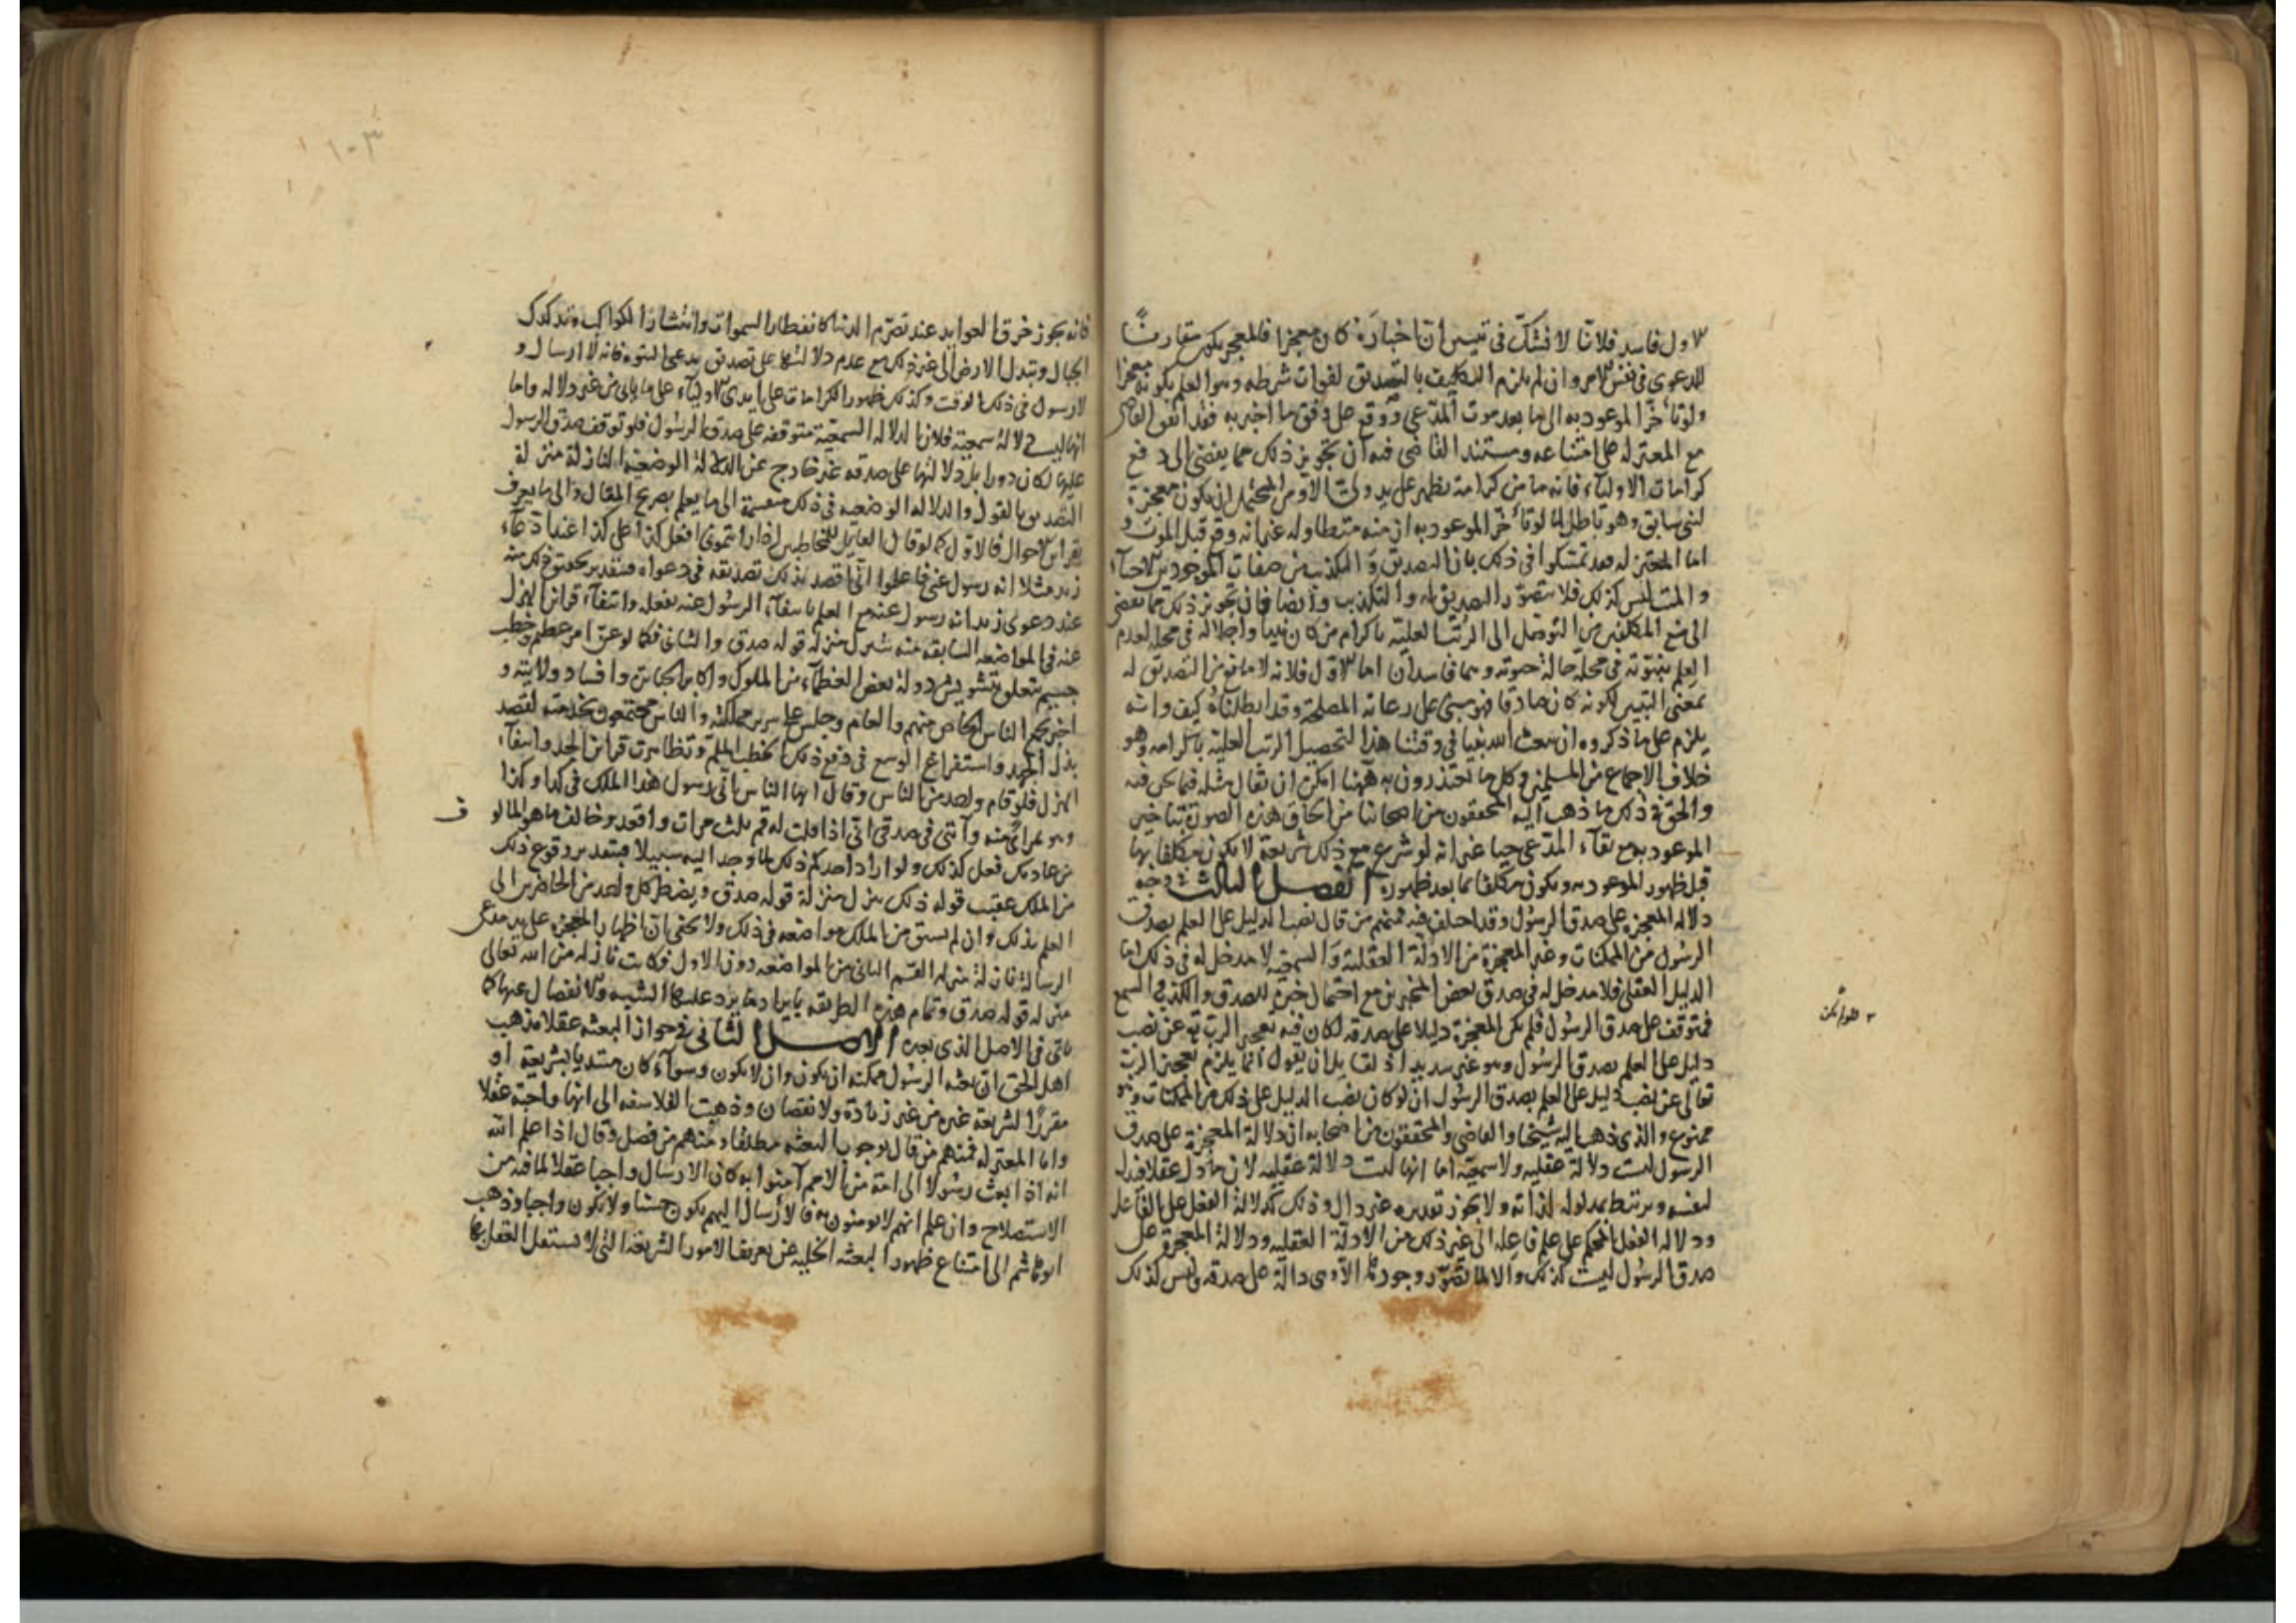 الاول فاسد فلانا لا نشك في تبين ان اخباره كان معجزا فالمعجز يكون مقارنا
للدعوى في نفس الامر وان لم يلزم التكليف بالتصديق لفوات شرطه وهو العلم بكونه معجزا
ولو تأخر الموعود به الى ما بعد موت المدعي ووقع على وفق ما اخبر به فقد اتفق القاضي
مع المعتزلة على امتناعه ومستند القاضي فيه ان تجويز ذلك مما يفضي الى دفع
كرامات الاولياء فانه ما من كرامة تظهر على يد ولي الا ومن المحتمل ان يكون معجزة
لنبي سابق وهو باطل لما لو تأخر الموعود به ازمنة متطاولة غير انه وقع قبل الموت و
اما المعتزلة فقد تمسكوا في ذلك بان التصديق والتكذيب من صفات الموجودين الاحياء
والميت ليس كذلك فلا يتصور التصديق له والتكذيب وايضا فان تجويز ذلك مما يفضي
الى منع المكلفين من التوصل الى الرتب العلية باكرام من كان نبيا واجلاله في محله لعدم
العلم بنبوته في محله حالة حيوته وهما فاسدان اما الاول فلانه لا مانع من التصديق له
بمعنى التبيين لكونه كان صادقا فهو مبني على رعاية المصلحة وقد ابطلناه كيف وانه
يلزم على ما ذكروه ان يبعث الله نبيا في وقتنا هذا لتحصيل الرتب العلية باكرامه وهو
خلاف الاجماع من المسلمين وكل ما يعتذرون به ههنا امكن ان يقال مثله فيما نحن فيه
والحق في ذلك ما ذهب اليه المحققون من اصحابنا من الحاق هذه الصورة بتأخير
الموعود به مع بقاء المدعي حيا غير انه لو شرع مع ذلك شريعة لا يكون مكلفا بها
قبل ظهور الموعود به ويكون مكلفا بها بعد ظهوره الفصل الثالث في وجه
دلالة المعجزة على صدق الرسول وقد اختلف فيه فمنهم من قال نصب الدليل على العلم بصدق
الرسول من الممكنات وغير المعجزة من الادلة العقلية والسمعية لا مدخل له في ذلك اما
الدليل العقلي فلا مدخل له في صدق بعض المخبرين مع احتمال خبره للصدق والكذب والسمع
فمتوقف على صدق الرسول فلو لم يكن المعجزة دليلا على صدقه لكان فيه تعجيز الرب تع عن نصب
دليل على العلم بصدق الرسول وهو غير سديد اذ لقائل ان يقول انما يلزم تعجيز الرب
تعالى عن نصب دليل على العلم بصدق الرسول ان لو كان نصب الدليل على ذلك من الممكنات وهو
ممنوع والذي ذهب اليه شيخنا والقاضي والمحققون من اصحابه ان دلالة المعجزة على صدق
الرسول ليست دلالة عقلية ولا سمعية اما انها ليست دلالة عقلية لان ما دل عقلا فدل
لنفسه ويرتبط بمدلوله لذاته ولا يجوز تقديره غير دال وذلك كدلالة الفعل على الفاعل
ودلالة الفعل المحكم على علم فاعله الى غير ذلك من الادلة العقلية ودلالة المعجزة على
صدق الرسول ليست كذلك والا لما تصور وجودها الا وهى دالة على صدقه وليس كذلك
١٠٣
فانه يجوز خرق العوايد عند تصرم الدنيا كانفطار السموات وانتشار الكواكب وتدكدك
الجبال وتبدل الارض الى غير ذلك مع عدم دلالتها على تصديق مدعي النبوة فانه لا ارسال و
لا رسول في ذلك الوقت وكذلك ظهور الكرامات على ايدى الاولياء على ما يأتي من غير دلالة واما
انها ليست دلالة سمعية فلان الدلالة السمعية متوقفة على صدق الرسول فلو توقف صدق الرسول
عليها لكان دورا بل دلالتها على صدقه غير خارج عن الدلالة الوضعية النازلة منزلة
التصديق بالقول والدلالة الوضعية في ذلك منقسمة الى ما يعلم بصريح المقال والى ما يعرف
بقرائن الاحوال فالاول كما لو قال القائل للمخاطبين اذا رأيتموني افعل كذا على كذا عند ادعاء
زيد مثلا انه رسول عني فاعلموا اني اقصد بذلك تصديقه في دعواه فبتقدير تحقق ذلك منه
عند دعوى زيد انه رسول عنه مع العلم بانتفاء الرسول عنه بفعله وانتفاء قرائن الهزل
عنه في المواضعة السابقة منه تنزل منزلة قوله صدق والثاني فكما لو عن امر عظيم وخطب
جسيم متعلق بتشويش دولة بعض العظماء من الملوك واكابر الجبابرة وافساد ولايته و
اخبر بجمع الناس الخاص منهم والعام وجلس على سرير مملكته والناس مجتمعون بخدمته لقصد
بذل الجهد واستفراغ الوسع في دفع ذلك الخطب الملم وتظاهرت قرائن الجد وانتفاء
الهزل فلو قام واحد من الناس وقال ايها الناس اني رسول هذا الملك في كذا وكذا
وهو بمرأى منه وآيتي في صدقي اني اذا قلت له قم ثلث مرات واقعد وخالف ما هو المألوف
من عادتك فعل كذلك ولو اراد احدكم ذلك لما وجد اليه سبيلا فبتقدير وقوع ذلك
من الملك عقيب قوله ذلك ينزل منزلة قوله صدق ويضطر كل واحد من الحاضرين الى
العلم بذلك وان لم يسبق من الملك مواضعة في ذلك ولا يخفى ان اظهار المعجزة على يد مدعي
الرسالة نازلة منزلة القسم الثاني من المواضعة دون الاول فكانت نازلة من الله تعالى
منزلة قوله صدق وتمام هذه الطريقة بايراد ما يرد عليها الشبه والانفصال عنها كما
يأتي في الاصل الذي بعده الاصل الثاني في جواز البعثة عقلا مذهب
اهل الحق ان بعثة الرسول ممكنة ان يكون وان لا يكون وسواء كان مبتديا بشريعة او
مقررا لشريعة غيره من غير زيادة ولا نقصان وذهبت الفلاسفة الى انها واجبة عقلا
واما المعتزلة فمنهم من قال بوجوب البعثة مطلقا ومنهم من فصل وقال اذا علم الله
انه اذا بعث رسولا الى امة من الامم آمنوا به كان الارسال واجبا عقلا لما فيه من
الاستصلاح وان علم انهم لا يومنون به فالارسال اليهم يكون حسنا ولا يكون واجبا وذهب
ابو هاشم الى امتناع ظهور البعثة الخلية عن تعريف الامور الشرعية التي لا تستقل العقل بها